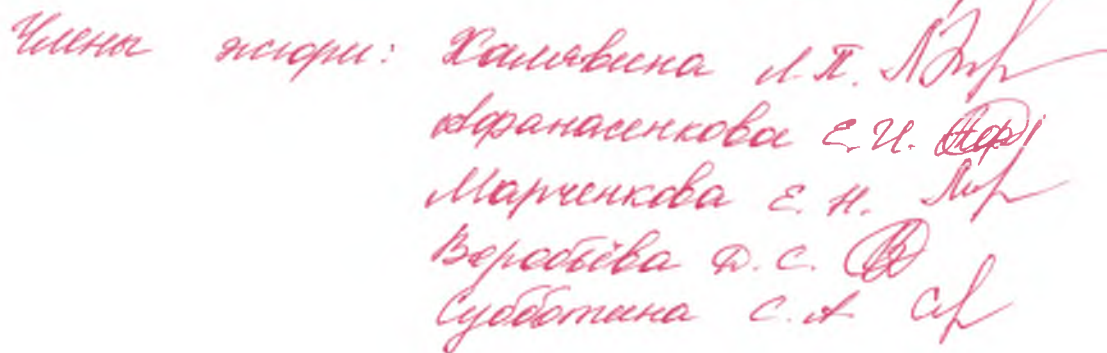 Члены жюри: Халявина Л.П.
Афранасенкова Е.И.
Марченкова Е.Н.
Воробьёва Д.С.
Субботина С.А